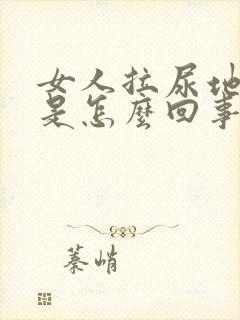 女人拉尿地
是怎麼回事
蓁峭